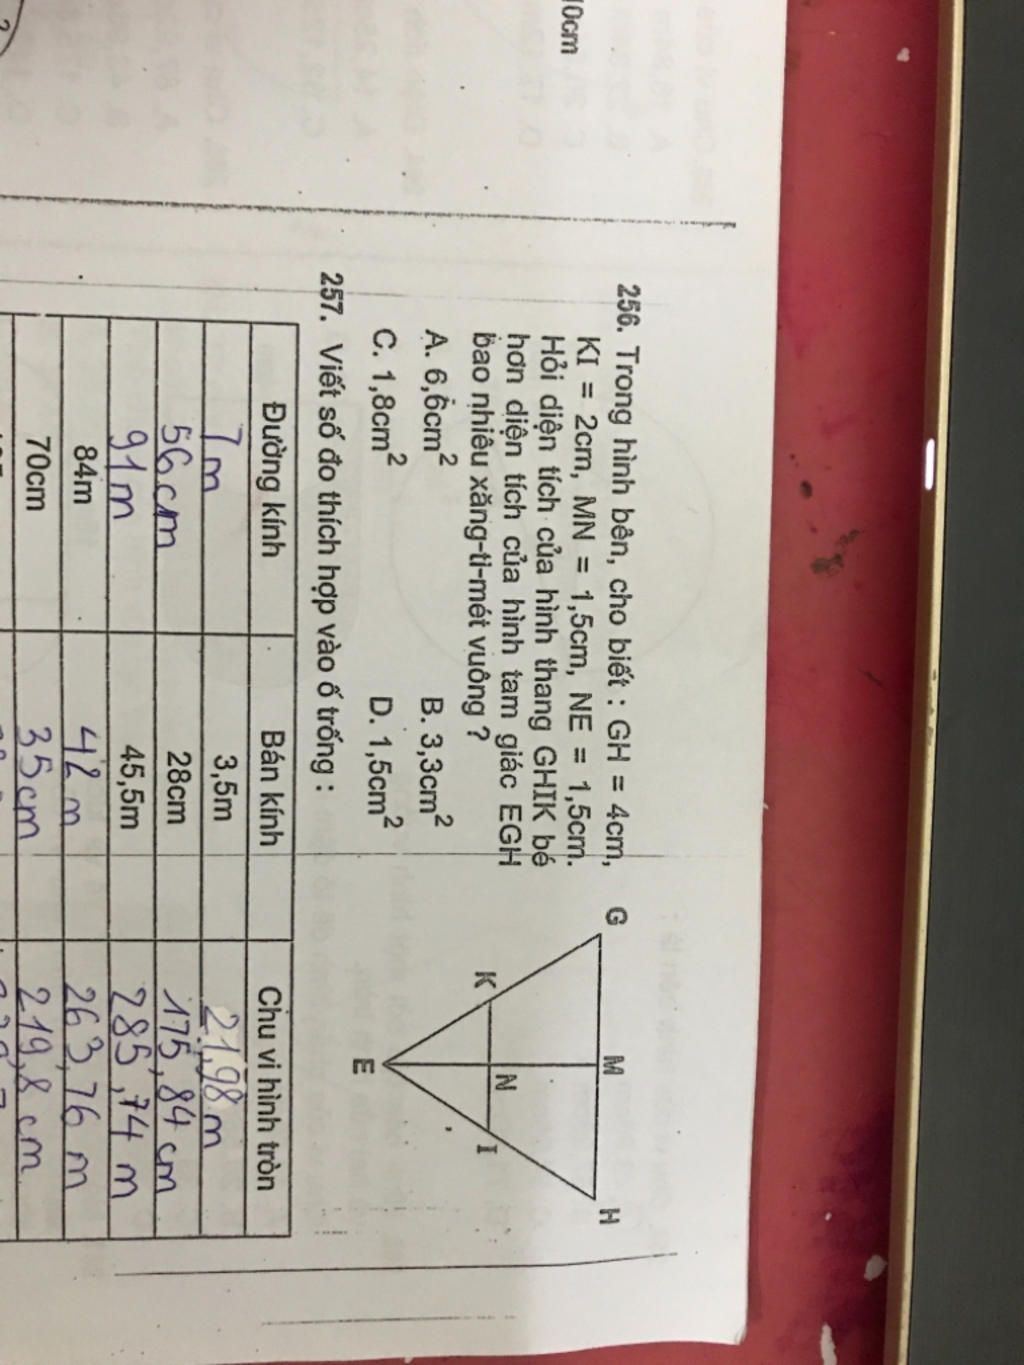 10cm
256. Trong hình bên, cho biết : GH = 4cm,
KI = 2cm, MN = 1,5cm, NE = 1,5cm.
Hỏi diện tích của hình thang GHIK bé
hơn diện tích của hình tam giác EGH
bao nhiêu xăng-ti-mét vuông ?
A. 6,6cm²
B. 3,3cm²
C. 1,8cm²
D. 1,5cm²
G M H
K N I
E
257. Viết số đo thích hợp vào ô trống :
Đường kính Bán kính Chu vi hình tròn
7m 3,5m 21,98 m
56cm 28cm 175,84 cm
91m 45,5m 285,74 m
84m 42 m 263,76 m
70cm 35cm 219,8 cm